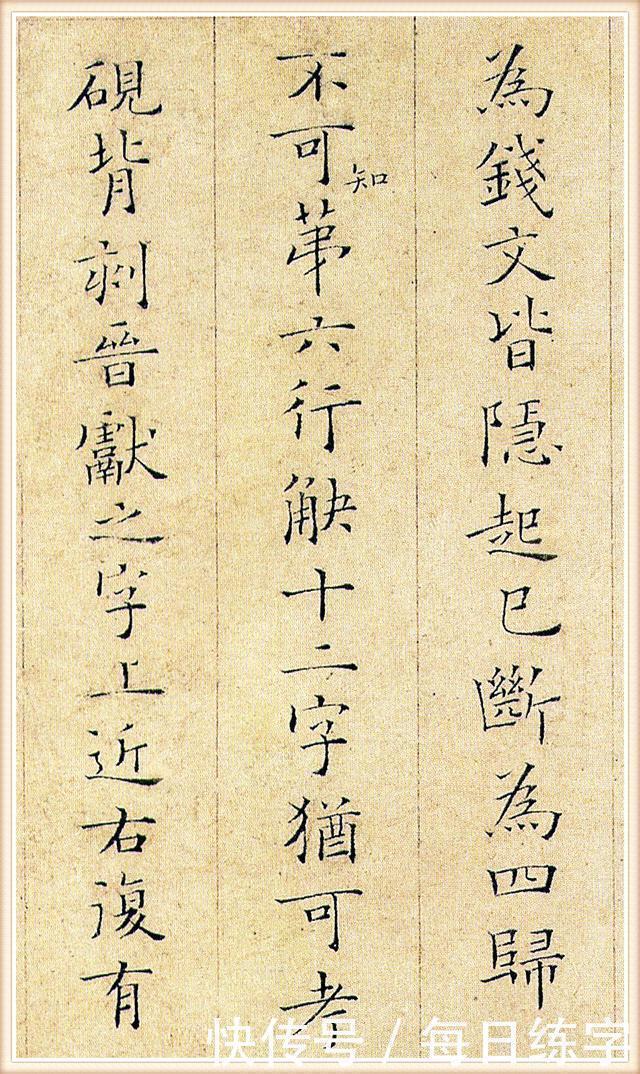 為錢文皆隱起已斷為四歸
不可知苐六行觖十二字猶可考
硯背刻晉獻之字上近右復有
快传号 / 每日练字